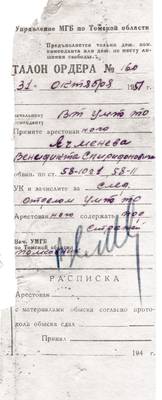 Управление МГБ по Томской области
Предъявляется только дли. пом.
коменданта или дли. по месту ли-
шения свободы.
ТАЛОН ОРДЕРА № 160
31 октября 1951 г.
Начальнику
Примите арестованного
Ячменева
Венедикта Спиридонович
обвин. по ст. 58-10ч1 58-11
УК и зачислите за след.
отделом УМГБ ТО
Арестованного содержать под
стражей
Нач. УМГБ
по Томской области
РАСПИСКА
Арестован
с материалами обыска согласно прото-
кола обыска сдал
Принял
194 г.